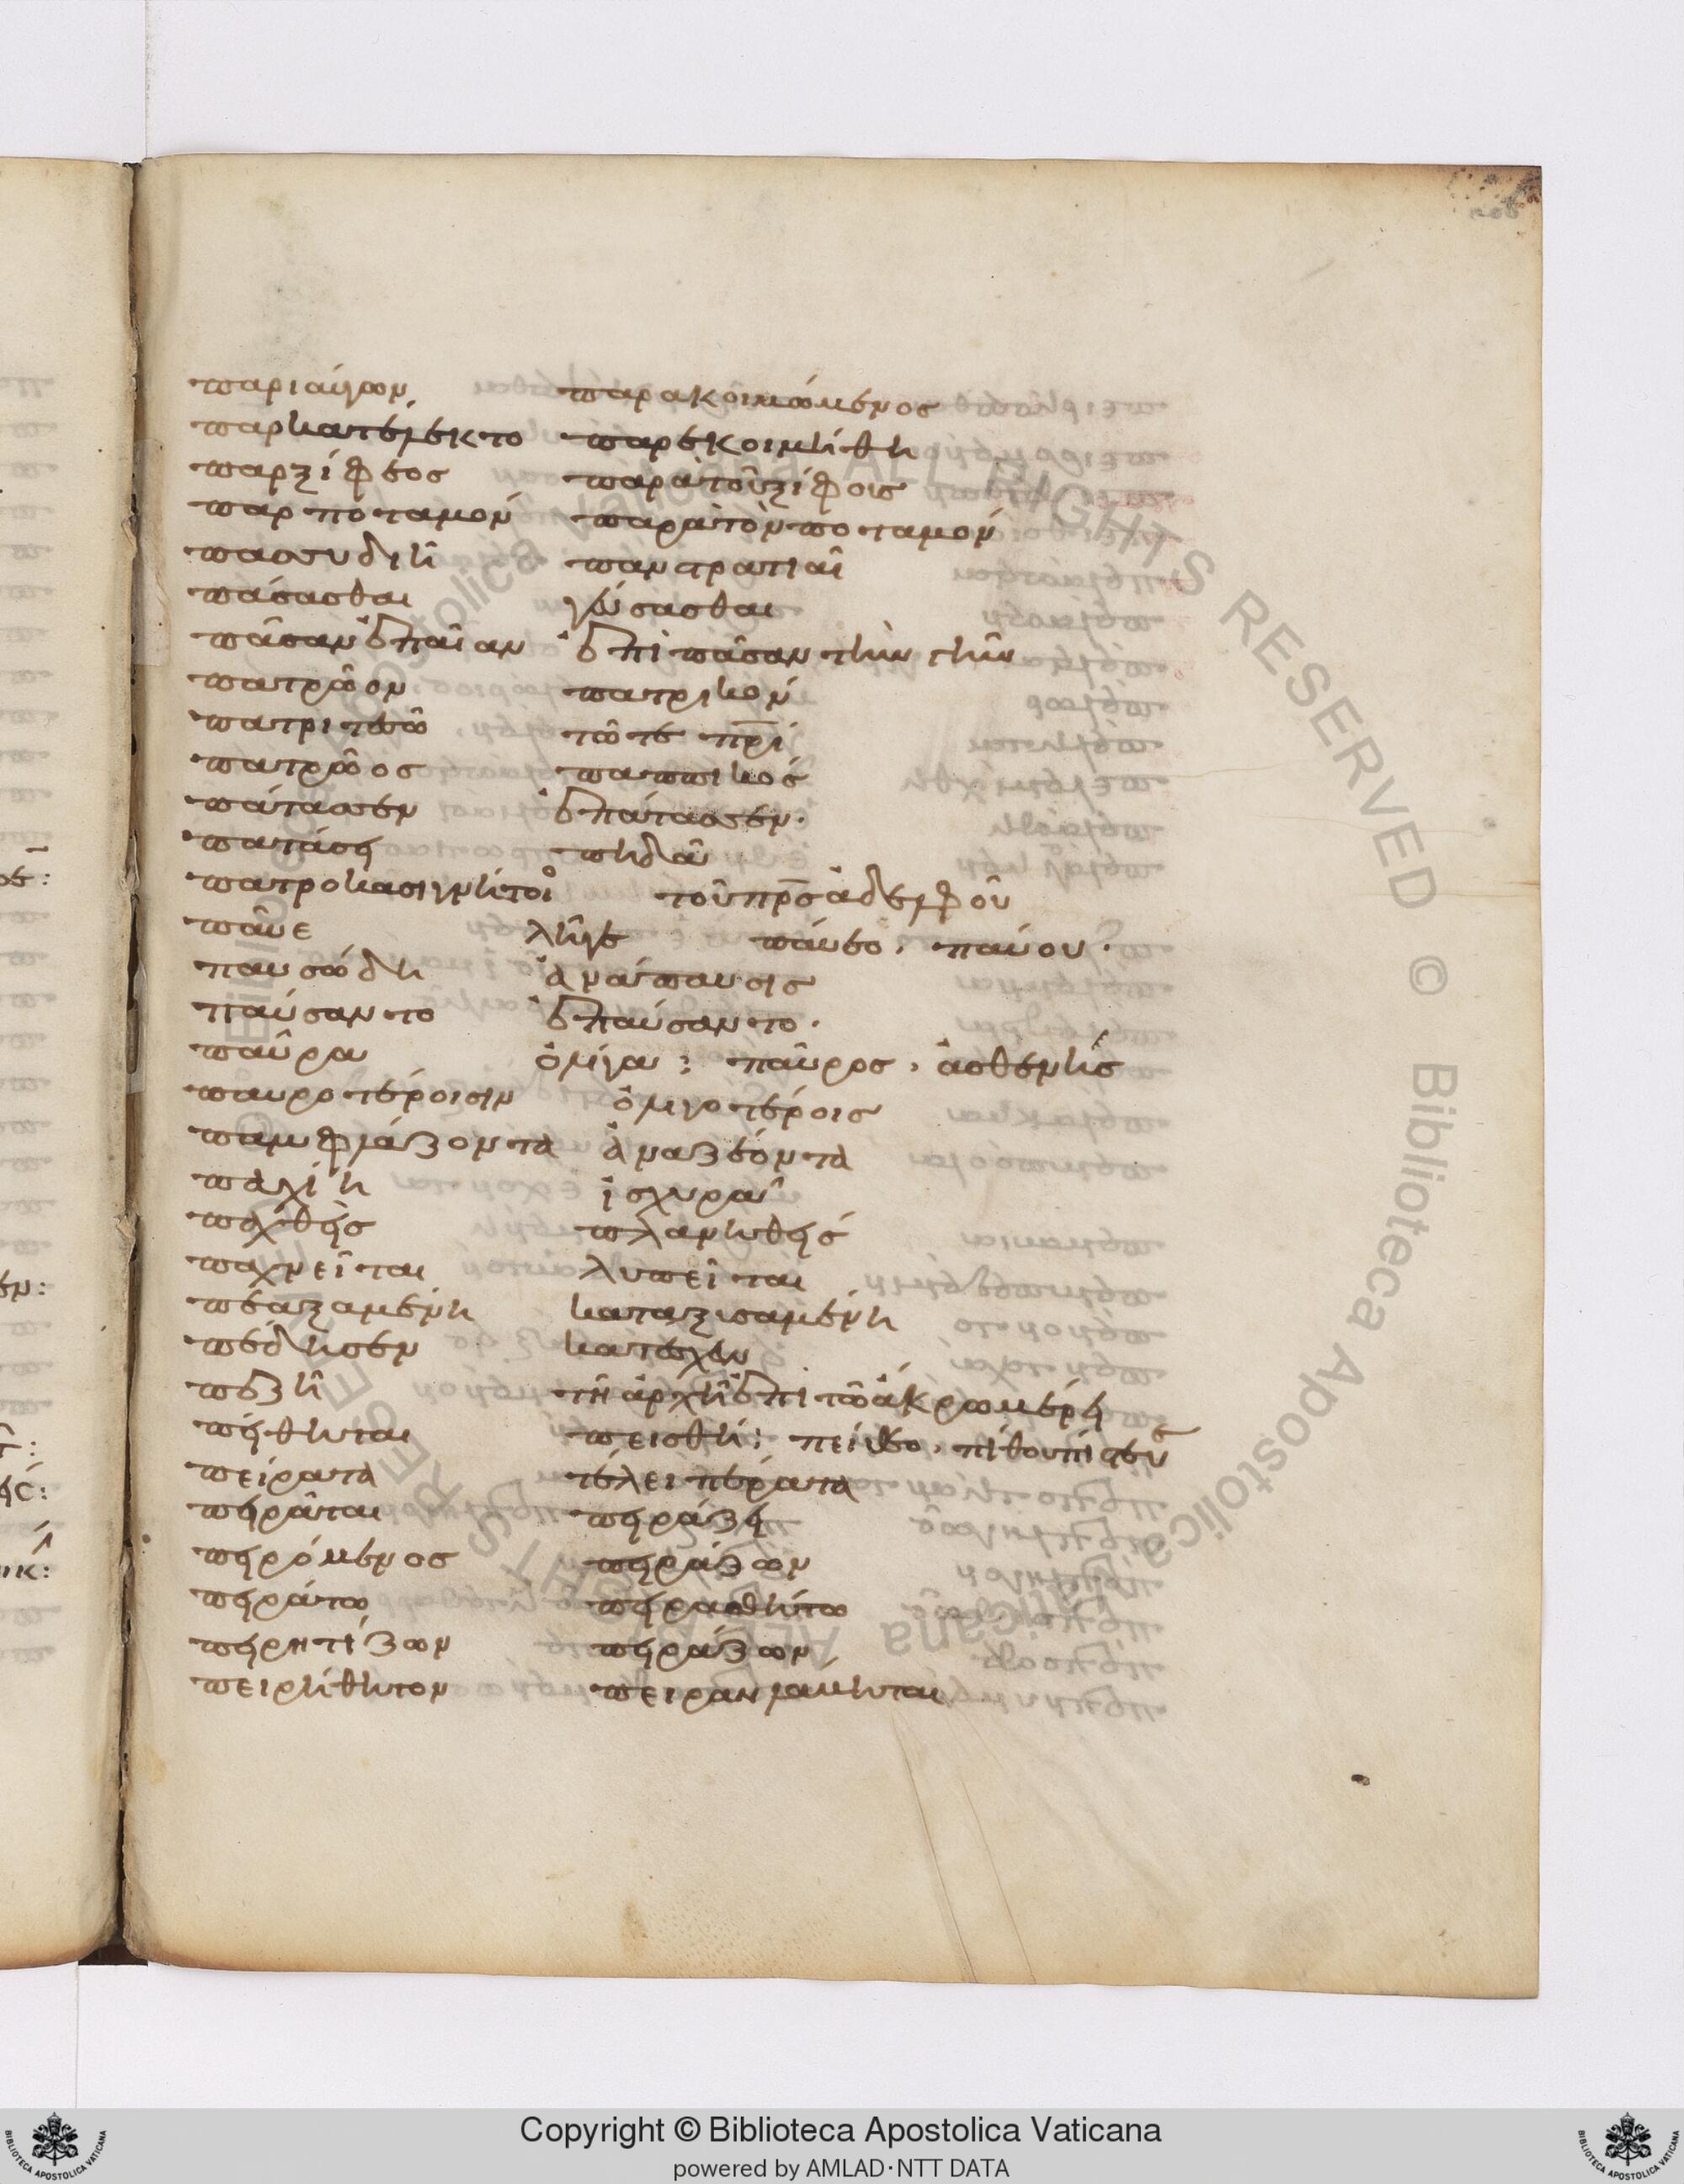 παριαύων παρακοιμώμενος
παρκατέλεκτο παρεκοιμήθη
παρξίφεος παρὰ τοῦ ξίφοις
παρποταμόν παρὰ τὸν ποταμόν
πασσυδιῆ πανστρατιαῖ
πάσασθαι γεύσασθαι
πᾶσαν ἐπαῖαν ἐπὶ πᾶσαν τὴν γῆν
πατρῶον πατρικόν
πατρὶ τεῶ τῶ τε πρί
πατρῶος παππικός
πάτασσεν ἐπάτασσεν.
πατάσει πηδᾶ
πατροκασιγνήτοιο τοῦ πρς ἀδελφοῦ
παῦε λῆγε παύεο, παύου.
παυσώδη ἀνάπαυσις
παύσαντο ἐπαύσαντο.
παῦρα ὀλίγα: παῦρος, ἀσθενής
παυροτέροισιν ὀλιγοτέροις
παμφλάζοντα ἀναζέοντα
παχίη ἰσχυρᾶ
πλαχθείς πλανηθείς
παχνεῖται λυπεῖται
πεαξαμένη καταξισαμένη
πέδησεν κατέσχεν
πεζῆ τῆ ἀρχῆ ἐπὶ τῶ ἄκρω μέρει
πείθηται πεισθῆ: πείθεο, πίθου πίστευσ
πείρατα τέλει πέρατα
πειρᾶται πειράζει
πειρόμενος πειράζων
πειράτω πειρασθήτω
πειρητίζων πειράζων
πειρήθητον πεῖραν λάβηται
Copyright © Biblioteca Apostolica Vaticana
powered by AMLAD·NTT DATA